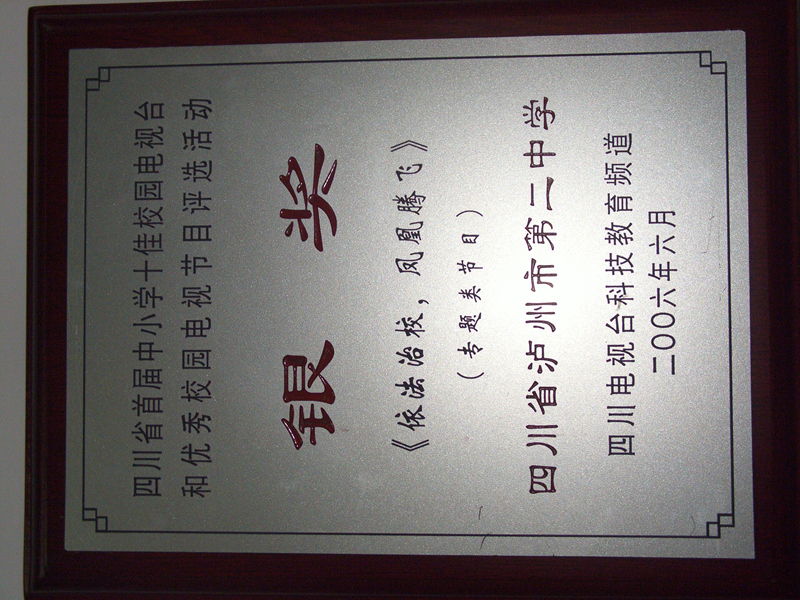 四川省首届中小学十佳校园电视台
和优秀校园电视节目评选活动
银奖
《依法治校，凤凰腾飞》
（专题类节目）
四川省泸州市第二中学
四川电视台科技教育频道
二〇〇六年六月